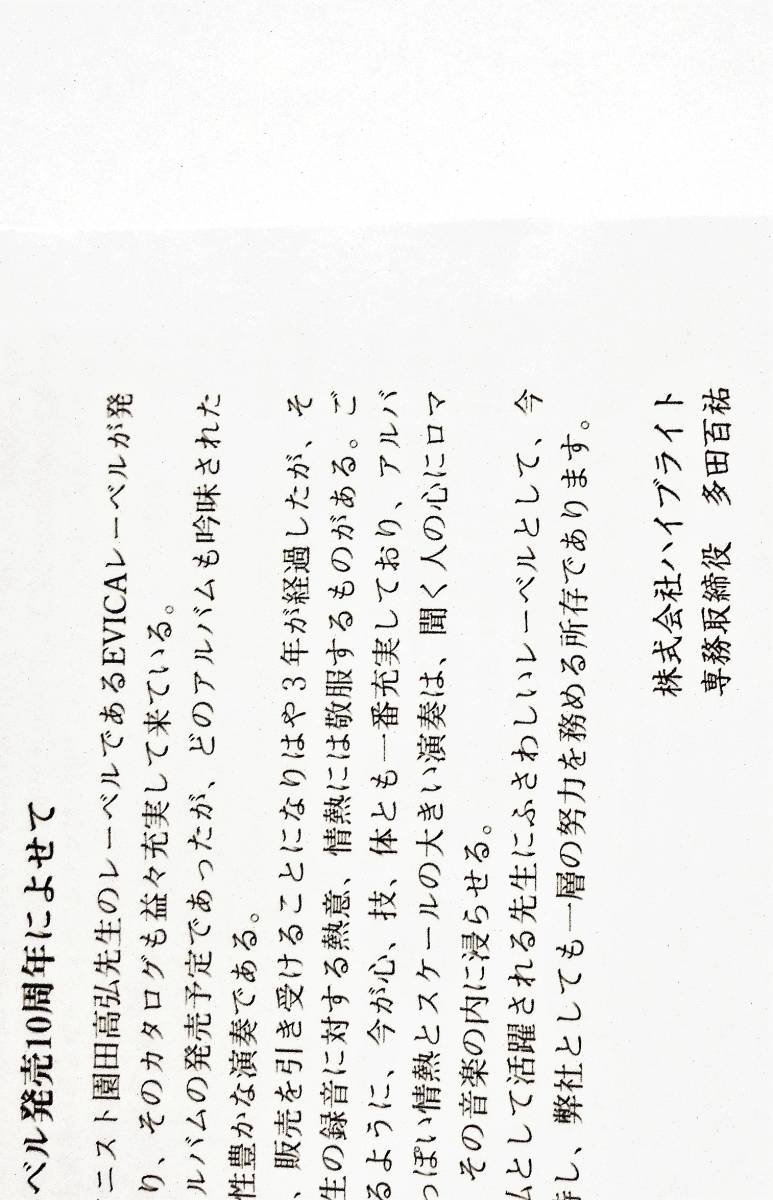 ベル発売10周年によせて
ニスト園田高弘先生のレーベルであるEVICAレーベルが発
り、そのカタログも益々充実して来ている。
ルバムの発売予定であったが、どのアルバムも吟味された
性豊かな演奏である。
、販売を引き受けることになりはや3年が経過したが、そ
生の録音に対する熱意、情熱には敬服するものがある。ご
るように、今が心、技、体とも一番充実しており、アルバ
っぽい情熱とスケールの大きい演奏は、聞く人の心にロマ
その音楽の内に浸らせる。
ムとして活躍される先生にふさわしいレーベルとして、今
し、弊社としても一層の努力を務める所存であります。
株式会社ハイブライト
専務取締役 多田百祐